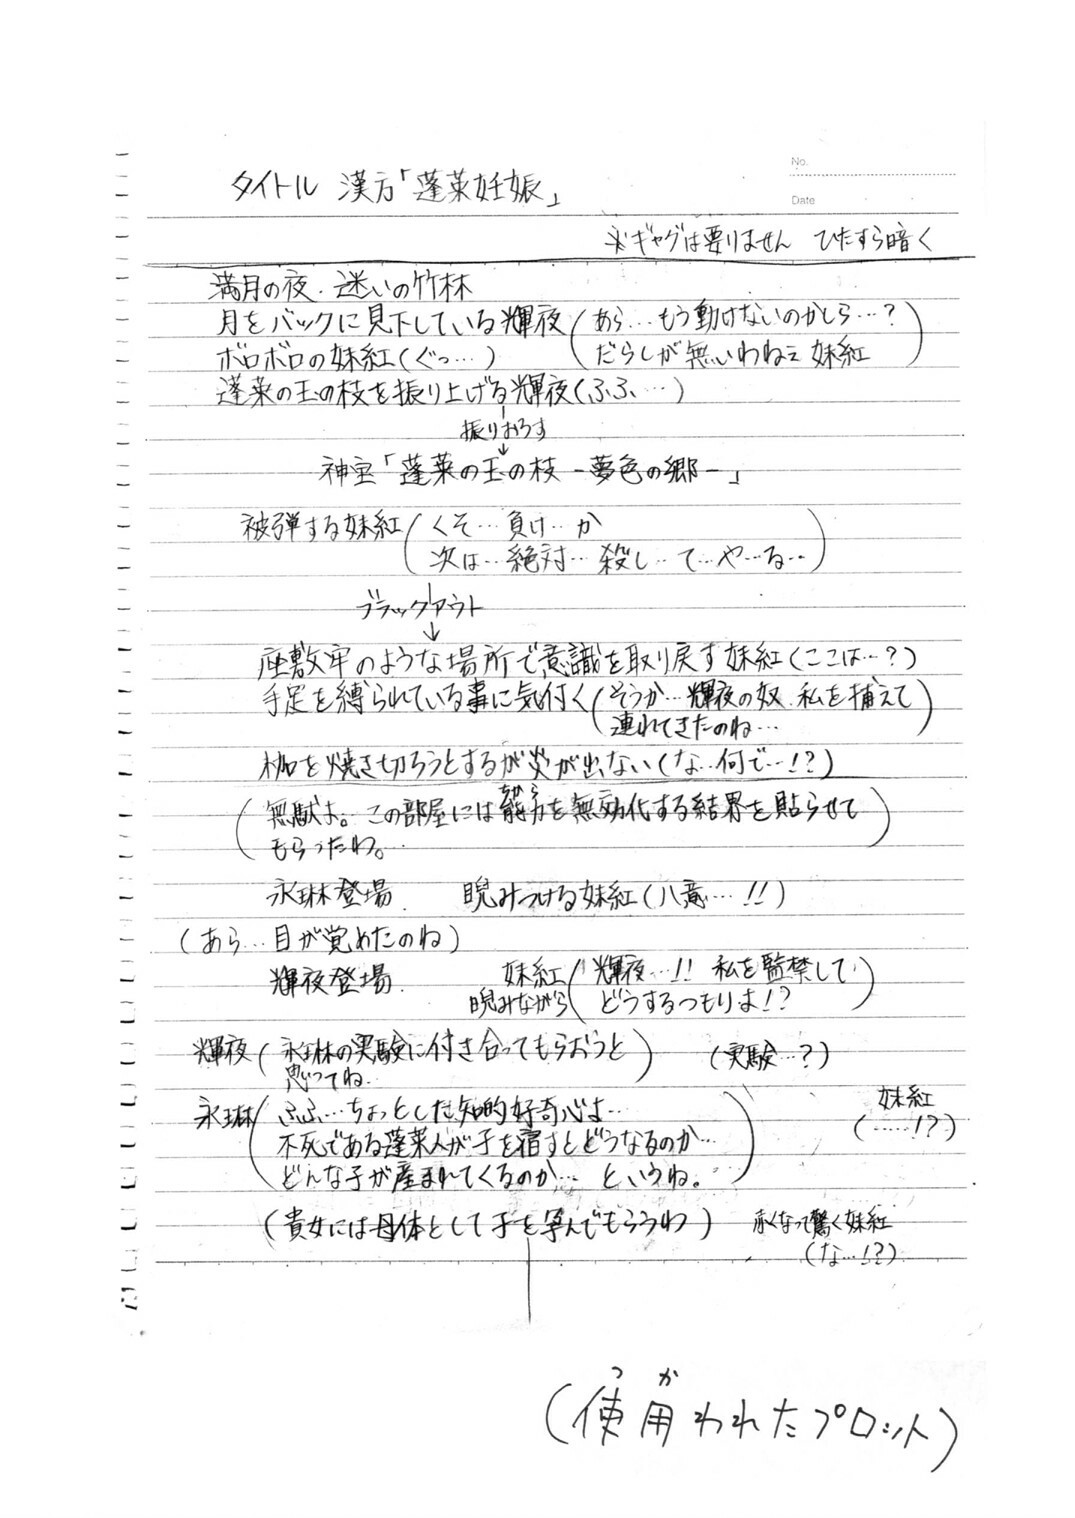 No.
Date
タイトル 漢方「蓬莱妊娠」
※ギャグは要りません ひたすら暗く
満月の夜・迷いの竹林
月をバックに見下している輝夜(あら…もう動けないのかしら…?
だらしが無いわねぇ 妹紅)
ボロボロの妹紅(ぐっ…)
蓬莱の玉の枝を振り上げる輝夜(ふふ…)
振りおろす
神宝「蓬莱の玉の枝 -夢色の郷-」
被弾する妹紅(くそ…負け…か
次は…絶対…殺し…て…や…る…)
ブラックアウト
座敷牢のような場所で意識を取り戻す妹紅(ここは…?)
手足を縛られている事に気付く(そうか…輝夜の奴、私を捕えて
連れてきたのね…)
枷を焼き切ろうとするが炎が出ない(な…何で…!?)
(無駄よ。この部屋には能力を無効化する結界を貼らせて
もらったわ。)
永琳登場. 睨みつける妹紅(八意…!!)
(あら…目が覚めたのね)
輝夜登場. 妹紅 睨みながら(輝夜…!! 私を監禁して
どうするつもりよ!?)
輝夜(永琳の実験に付き合ってもらおうと
思ってね…) (実験…?)
永琳(ふふ…ちょっとした知的好奇心よ…
不死である蓬莱人が子を宿すとどうなるのか…
どんな子が産まれてくるのか… というね。)
妹紅
(……!?)
(貴女には母体として子を孕んでもらうわ) 赤くなって驚く妹紅
(な…!?)
(使用われたプロット)